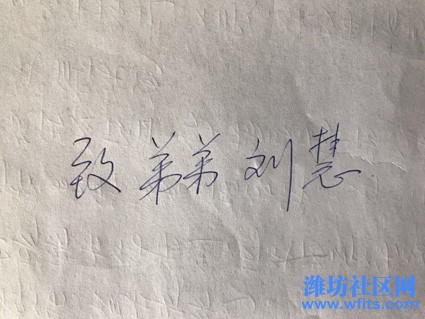 致弟弟刘慧
潍坊社区网
www.wfits.com